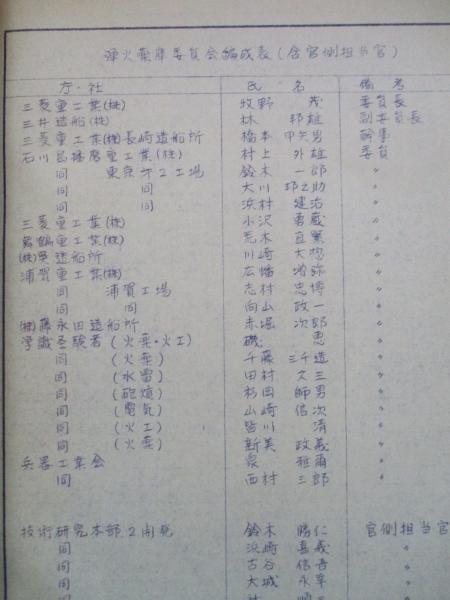 弾火薬庫委員会編成表(含官側担当官)
方・社 氏 名 備 考
三菱重工業(株) 牧野 茂 委員長
三井造船(株) 林 邦雄 副委員長
三菱重工業(株)長崎造船所 橋本 甲矢男 幹事
石川島播磨重工業(株) 村上 外雄 委員
同 東京才2工場 鈴木 一郎 〃
同 同 大川 邦之助 〃
同 同 浜村 建治 〃
三菱重工業(株) 小沢 勇蔵 〃
舞鶴重工業(株) 荒木 直 〃
(株)呉造船所 川崎 大 〃
浦賀重工業(株) 広幡 増弥 〃
同 浦賀工場 志村 忠博 〃
同 同 向山 政一 〃
(株)藤永田造船所 赤堀 次郎 〃
学識圣験者(火薬・火工) 磯 恵 〃
同 (火薬) 千藤 三千造 〃
同 (水雷) 田村 久三 〃
同 (砲熕) 杉岡 師男 〃
同 (電気) 山崎 信次 〃
同 (火工) 皆川 清 〃
同 (火薬) 新美 政義 〃
兵器工業会 泉 雅爾 〃
同 西村 三郎 〃
技術研究本部 2開発 鈴木 勝仁 官側担当官
同 浜崎 喜義 〃
同 古谷 信吾 〃
同 大城 永幸 〃
同